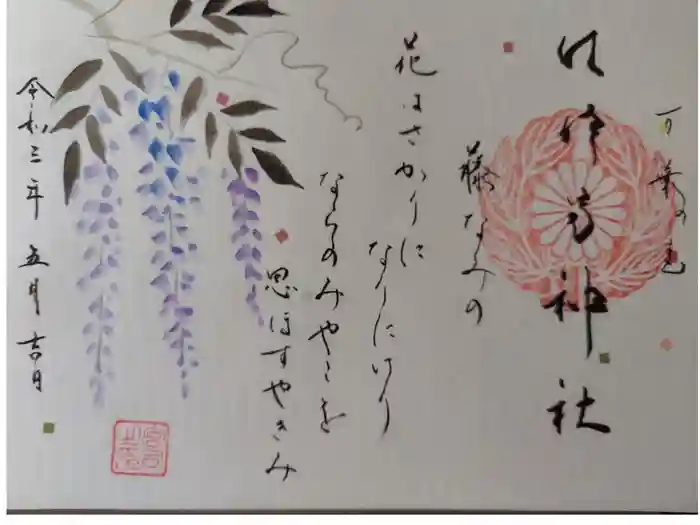 万葉の
神社
藤なみの
花はさかりに
なりにけり
ならのみやこを
思ほすやきみ
令和三年 五月 吉日